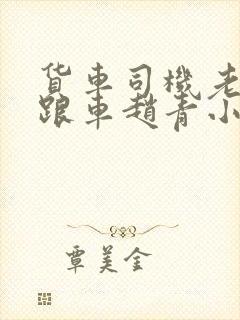 货车司機老
跟車趙青小
覃美金